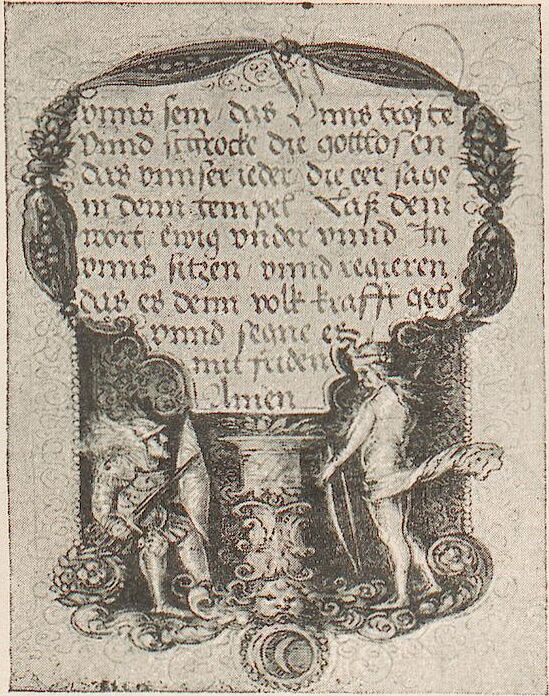 vnns sein / das Vnns tröste
Vnnd schrocke die gottlosen
das vnnser ieder / die eer sage
in denn tempel Laß dein
wort / Ewig vnder vnnd In
vnns sitzen / vnnd regieren
das es denn volk krafft geb
vnnd segne es
mit friden
Amen